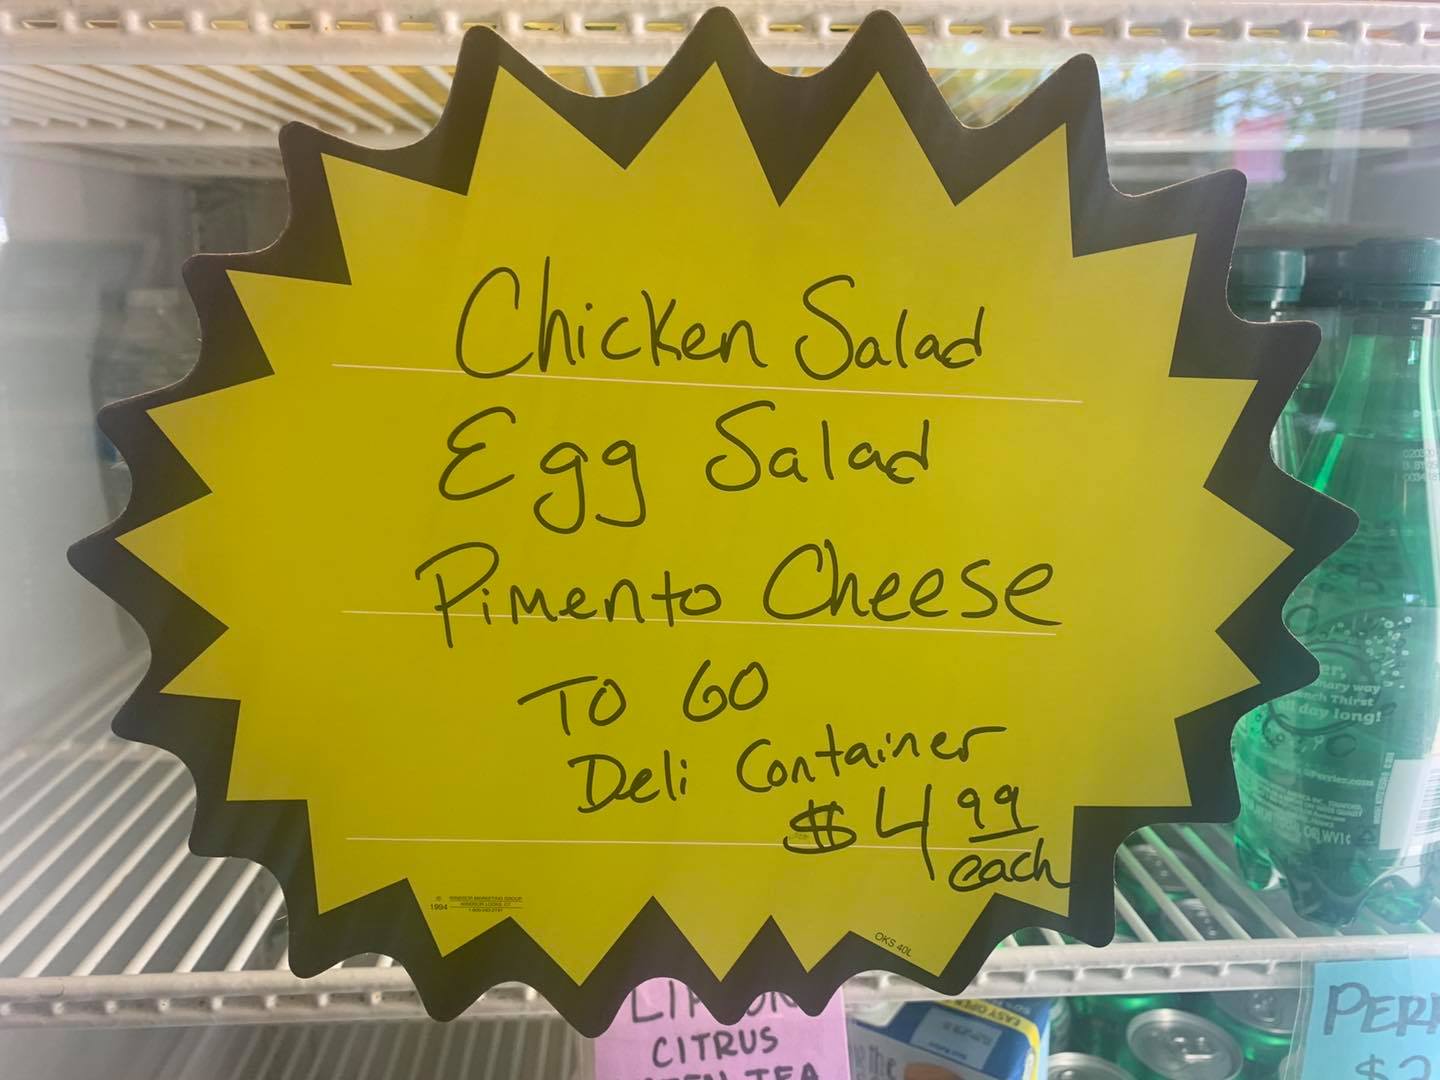 Chicken Salad
Egg Salad
Pimento Cheese
TO GO
Deli Container
$4 99
each
© 1994
WINDSOR MARKETING GROUP
WINDSOR LOCKS, CT
OKS 40L
CITRUS
TEA
EASY OPEN
the
$2
all day long!